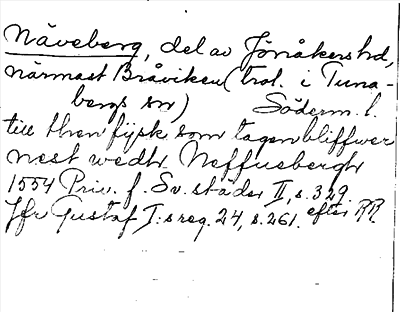 Näveberg, del av Jönåkers hd,
närmast Bråviken (trol. i Tuna-
bergs sn) Söderm. l.
till then fijsk som tagen bliffwer
nest wedh Neffuebergh
1554 Priv. f. Sv. städer II, s. 329.
Jfr Gustaf I:s reg. 24, s. 261. efter RR.